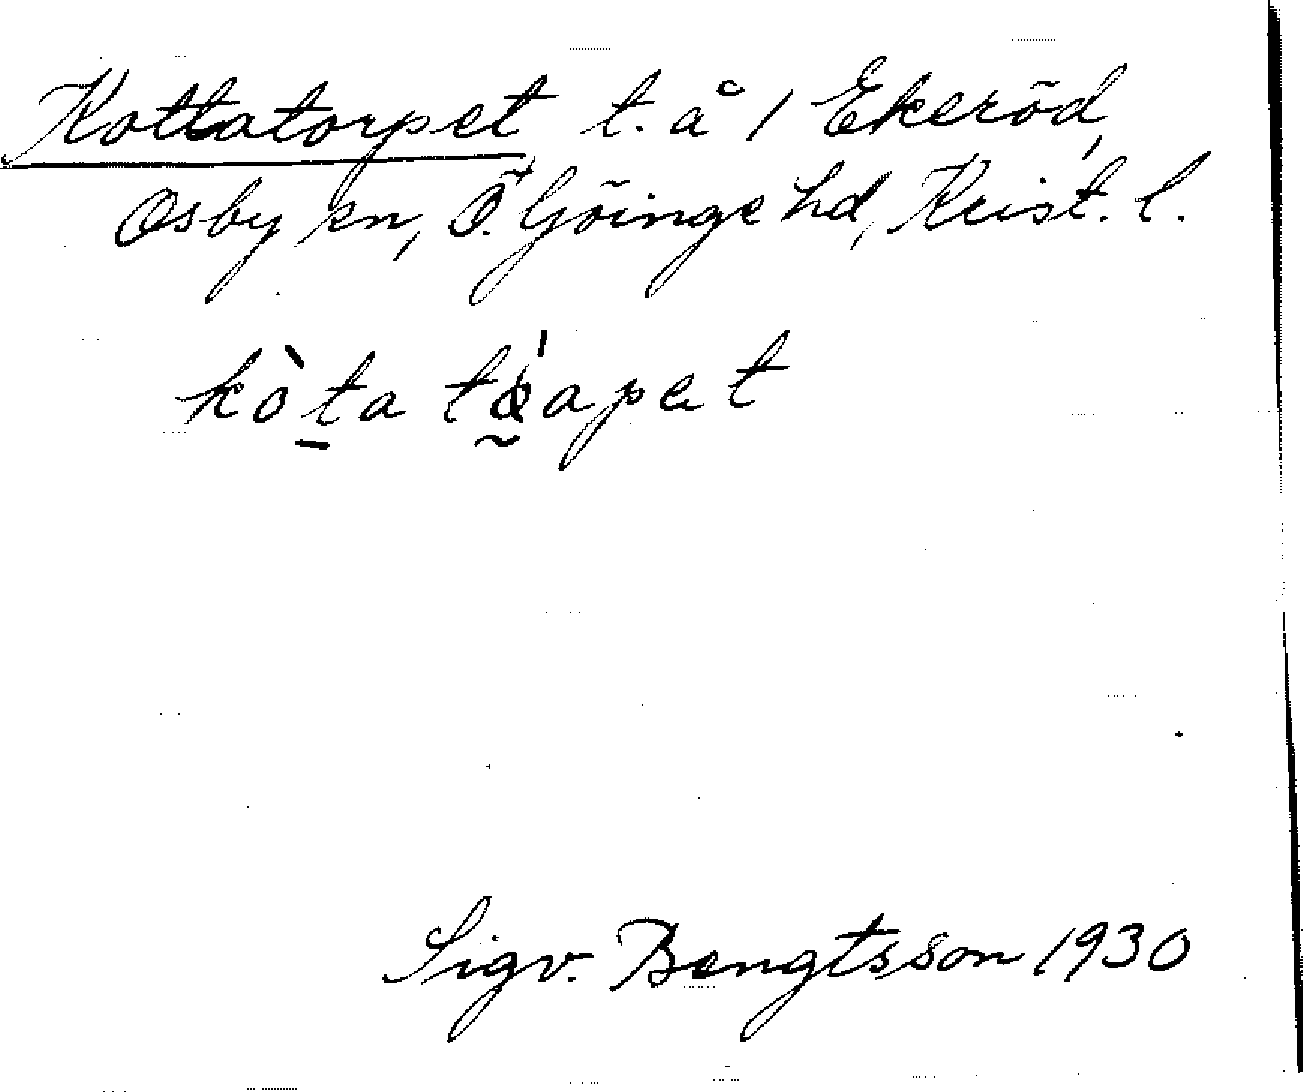 Kottatorpet t. å 1 Ekeröd,
Osby sn, Ö. Göinge hd, Krist. l.
kòta tǿapet
Sigv. Bengtsson 1930